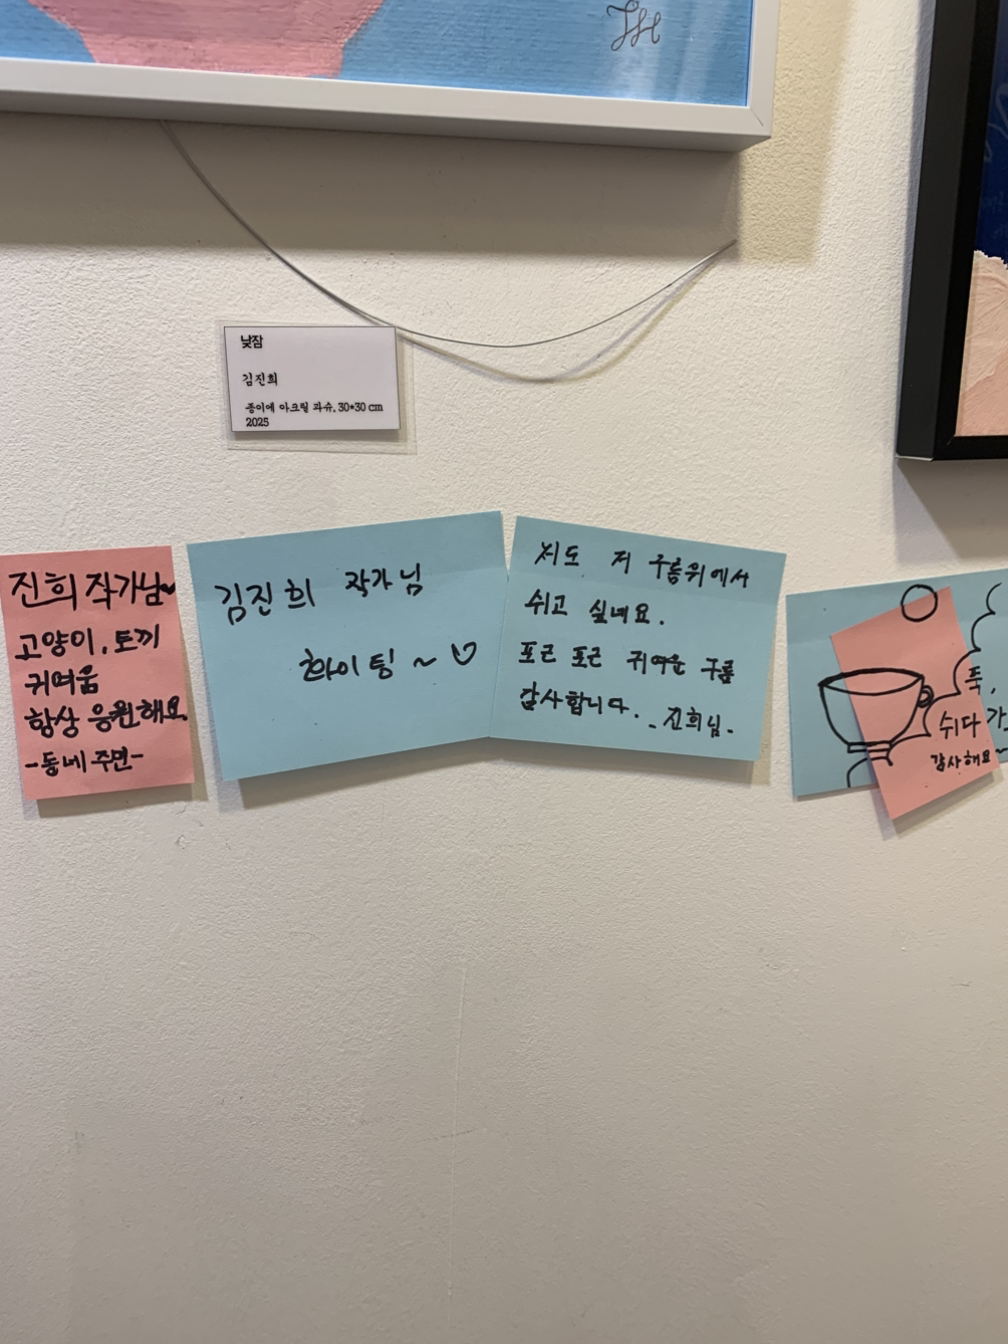 JH
낮잠
김진희
종이에 아크릴 과슈, 30*30 cm
2025
진희 작가님
고양이, 토끼
귀여움
항상 응원해요
-동네 주민-
김진희 작가님
화이팅 ~ ♡
저도 저 구름위에서
쉬고 싶네요.
포근 포근 귀여운 구름
감사합니다. - 진희님 -
푹,
쉬다 가
감사해요